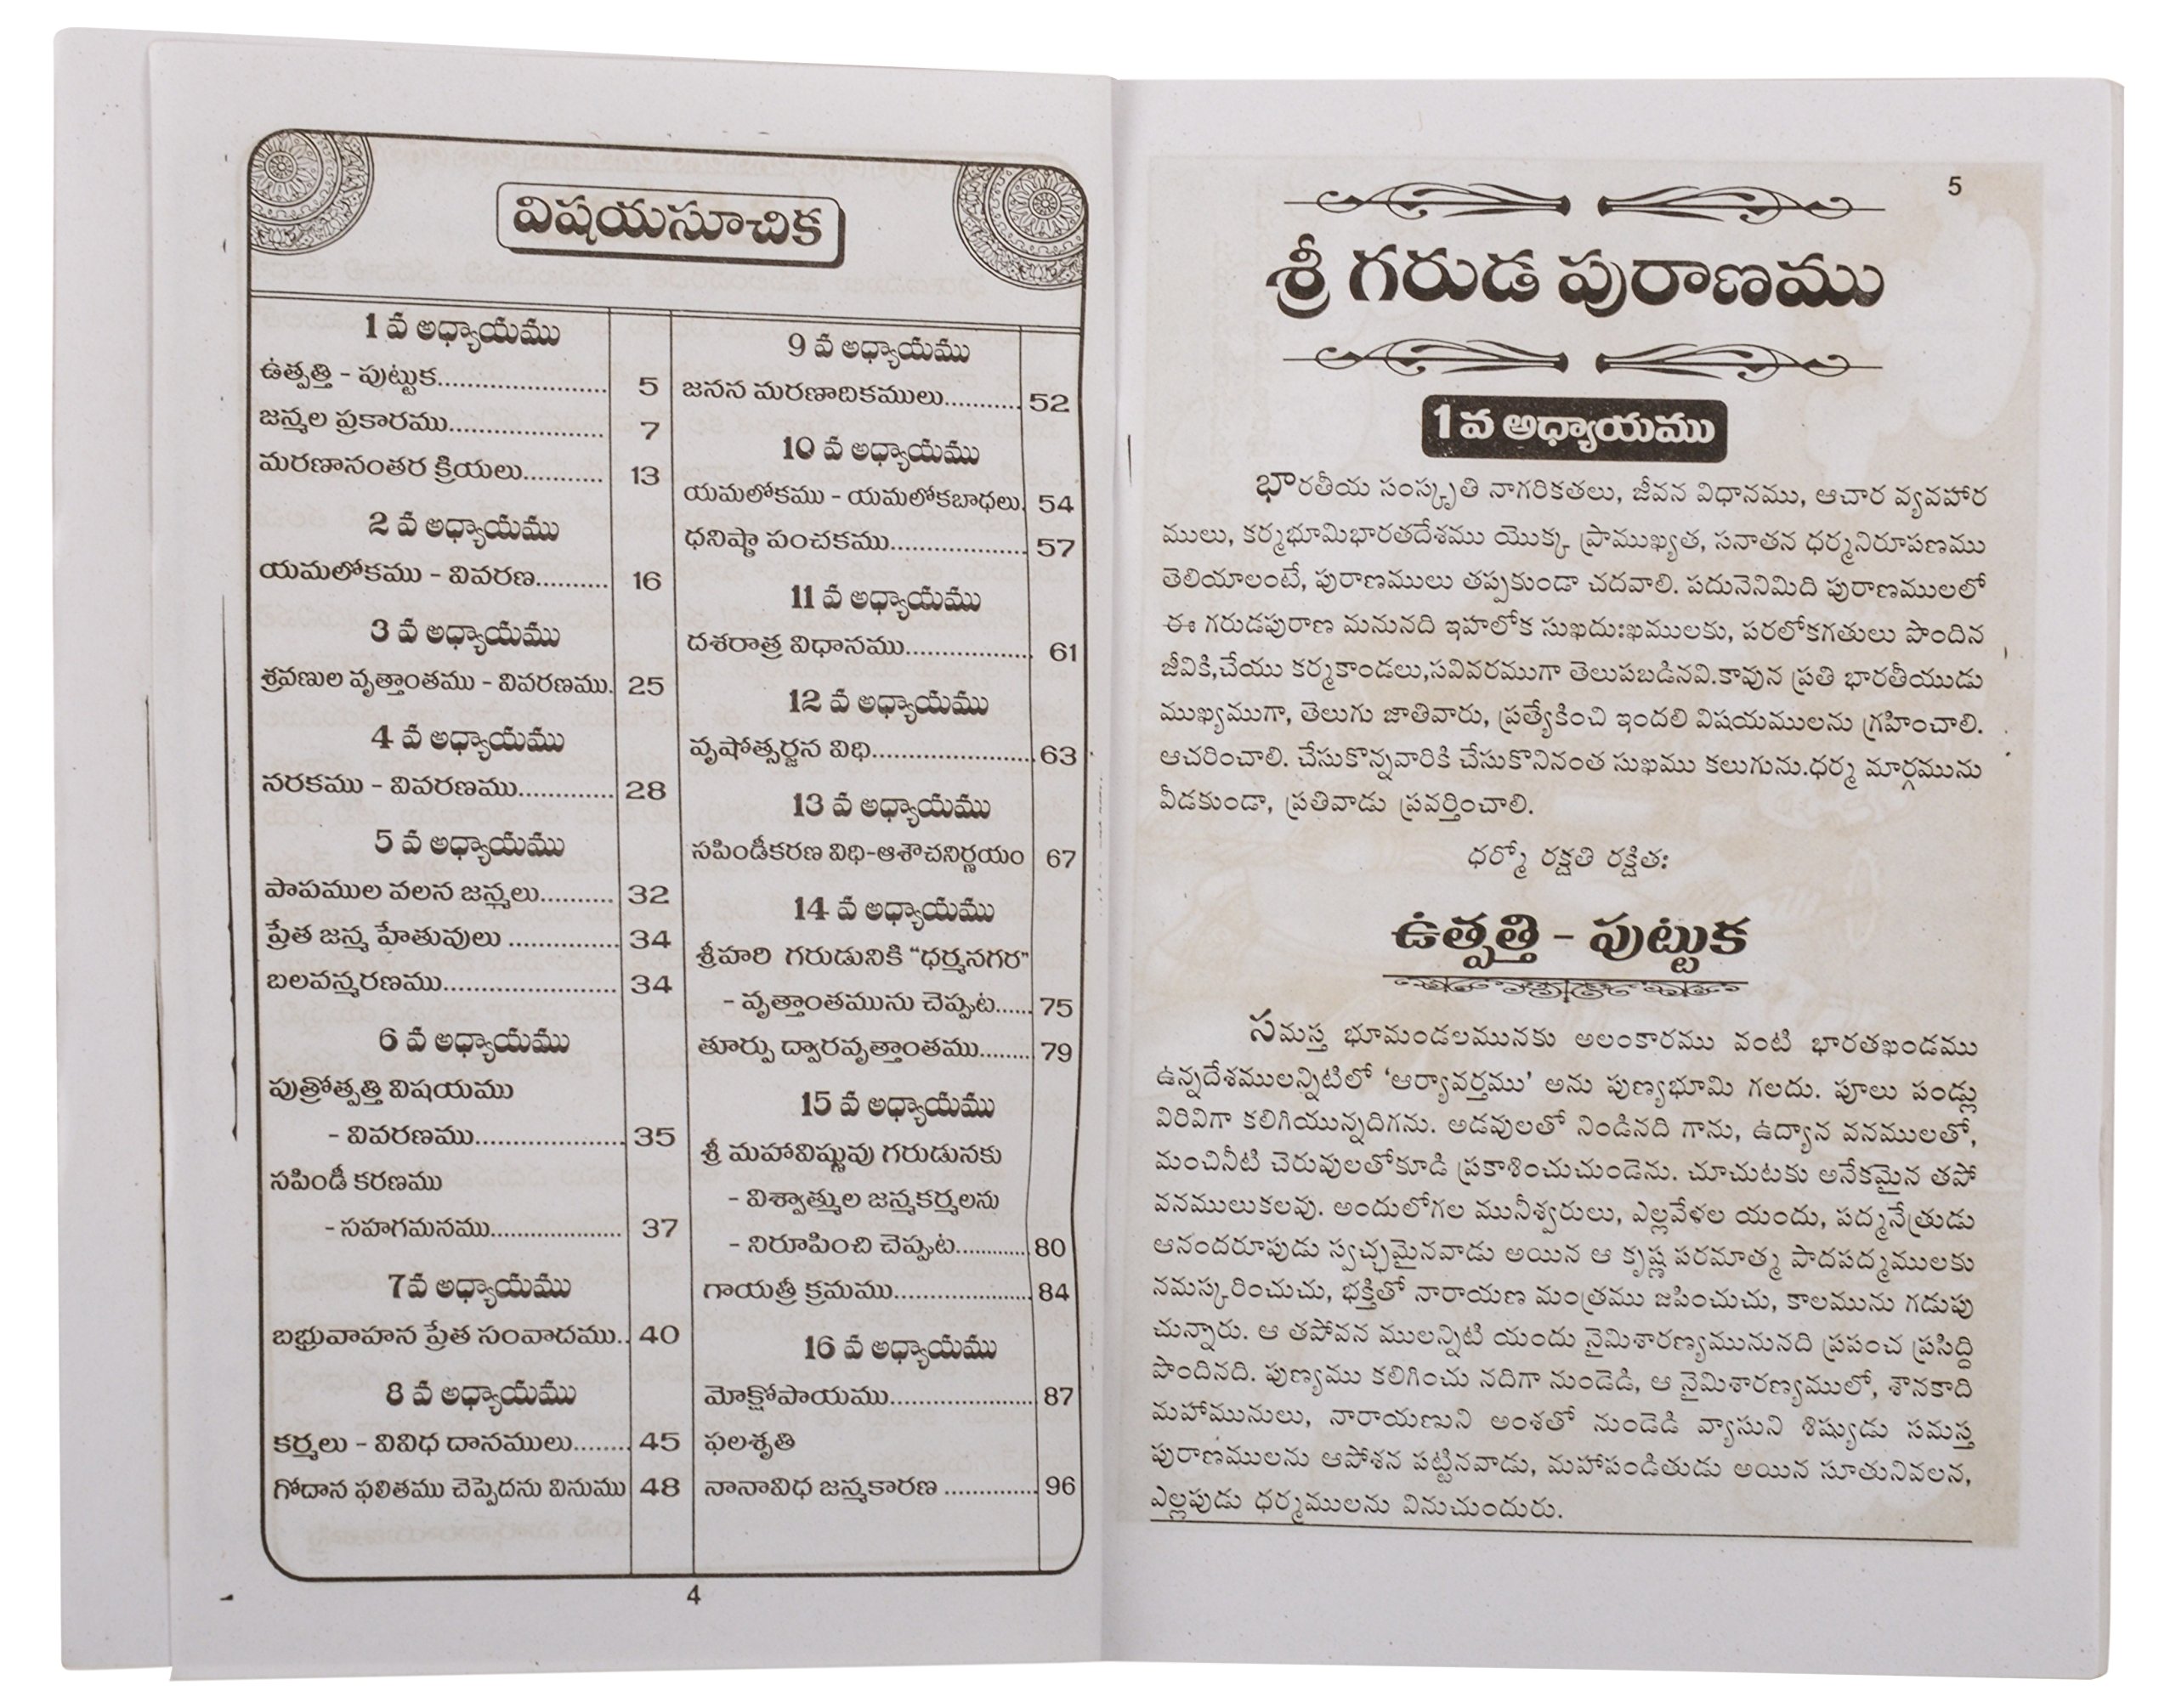 విషయసూచిక
1 వ అధ్యాయము
ఉత్పత్తి - పుట్టుక....................... 5
జన్మల ప్రకారము..................... 7
మరణానంతర క్రియలు........... 13
2 వ అధ్యాయము
యమలోకము - వివరణ.......... 16
3 వ అధ్యాయము
శ్రవణుల వృత్తాంతము - వివరణము. 25
4 వ అధ్యాయము
నరకము - వివరణము............. 28
5 వ అధ్యాయము
పాపముల వలన జన్మలు.......... 32
ప్రేత జన్మ హేతువులు ............... 34
బలవన్మరణము........................ 34
6 వ అధ్యాయము
పుత్రోత్పత్తి విషయము
- వివరణము..................... 35
సపిండీ కరణము
- సహగమనము...................... 37
7వ అధ్యాయము
బభ్రువాహన ప్రేత సంవాదము.. 40
8 వ అధ్యాయము
కర్మలు - వివిధ దానములు........ 45
గోదాన ఫలితము చెప్పెదను వినుము 48
9 వ అధ్యాయము
జనన మరణాదికములు........... 52
10 వ అధ్యాయము
యమలోకము - యమలోకబాధలు. 54
ధనిష్ఠా పంచకము................... 57
11 వ అధ్యాయము
దశరాత్ర విధానము.................. 61
12 వ అధ్యాయము
వృషోత్సర్జన విధి....................... 63
13 వ అధ్యాయము
సపిండీకరణ విధి-ఆశౌచనిర్ణయం 67
14 వ అధ్యాయము
శ్రీహరి గరుడునికి “ధర్మనగర”
- వృత్తాంతమును చెప్పుట...... 75
తూర్పు ద్వారవృత్తాంతము........ 79
15 వ అధ్యాయము
శ్రీ మహావిష్ణువు గరుడునకు
- విశ్వాత్ముల జన్మకర్మలను
- నిరూపించి చెప్పుట............ 80
గాయత్రీ క్రమము....................... 84
16 వ అధ్యాయము
మోక్షోపాయము........................ 87
ఫలశృతి
నానావిధ జన్మకారణ ............... 96
4
5
శ్రీ గరుడ పురాణము
1 వ అధ్యాయము
భారతీయ సంస్కృతి నాగరికతలు, జీవన విధానము, ఆచార వ్యవహార
ములు, కర్మభూమిభారతదేశము యొక్క ప్రాముఖ్యత, సనాతన ధర్మనిరూపణము
తెలియాలంటే, పురాణములు తప్పకుండా చదవాలి. పదునెనిమిది పురాణములలో
ఈ గరుడపురాణ మనునది ఇహలోక సుఖదుఃఖములకు, పరలోకగతులు పొందిన
జీవికి,చేయు కర్మకాండలు,సవివరముగా తెలుపబడినవి.కావున ప్రతి భారతీయుడు
ముఖ్యముగా, తెలుగు జాతివారు, ప్రత్యేకించి ఇందలి విషయములను గ్రహించాలి.
ఆచరించాలి. చేసుకొన్నవారికి చేసుకొనినంత సుఖము కలుగును.ధర్మ మార్గమును
వీడకుండా, ప్రతివాడు ప్రవర్తించాలి.
ధర్మో రక్షతి రక్షితః
ఉత్పత్తి - పుట్టుక
సమస్త భూమండలమునకు అలంకారము వంటి భారతఖండము
ఉన్నదేశములన్నిటిలో ‘ఆర్యావర్తము’ అను పుణ్యభూమి గలదు. పూలు పండ్లు
విరివిగా కలిగియున్నదిగను. అడవులతో నిండినది గాను, ఉద్యాన వనములతో,
మంచినీటి చెరువులతోకూడి ప్రకాశించుచుండెను. చూచుటకు అనేకమైన తపో
వనములుకలవు. అందులోగల మునీశ్వరులు, ఎల్లవేళల యందు, పద్మనేత్రుడు
ఆనందరూపుడు స్వచ్ఛమైనవాడు అయిన ఆ కృష్ణ పరమాత్మ పాదపద్మములకు
నమస్కరించుచు, భక్తితో నారాయణ మంత్రము జపించుచు, కాలమును గడుపు
చున్నారు. ఆ తపోవన ములన్నిటి యందు నైమిశారణ్యమునునది ప్రపంచ ప్రసిద్ధి
పొందినది. పుణ్యము కలిగించు నదిగా నుండెడి, ఆ నైమిశారణ్యములో, శౌనకాది
మహామునులు, నారాయణుని అంశతో నుండెడి వ్యాసుని శిష్యుడు సమస్త
పురాణములను ఆపోశన పట్టినవాడు, మహాపండితుడు అయిన సూతునివలన,
ఎల్లపుడు ధర్మములను వినుచుందురు.